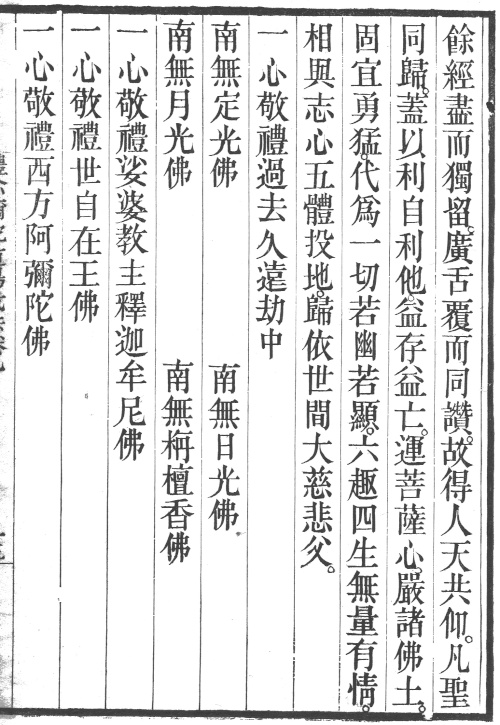 餘經盡而獨留。廣舌覆而同讚。故得人天共仰。凡聖
同歸。蓋以利自利他。益存益亡。運菩薩心。嚴諸佛土。
固宜勇猛。代爲一切若幽若顯。六趣四生無量有情。
相與志心五體投地。歸依世間大慈悲父。
一心敬禮過去久遠劫中
南無定光佛　南無日光佛
南無月光佛　南無栴檀香佛
一心敬禮娑婆教主釋迦牟尼佛
一心敬禮世自在王佛
一心敬禮西方阿彌陀佛